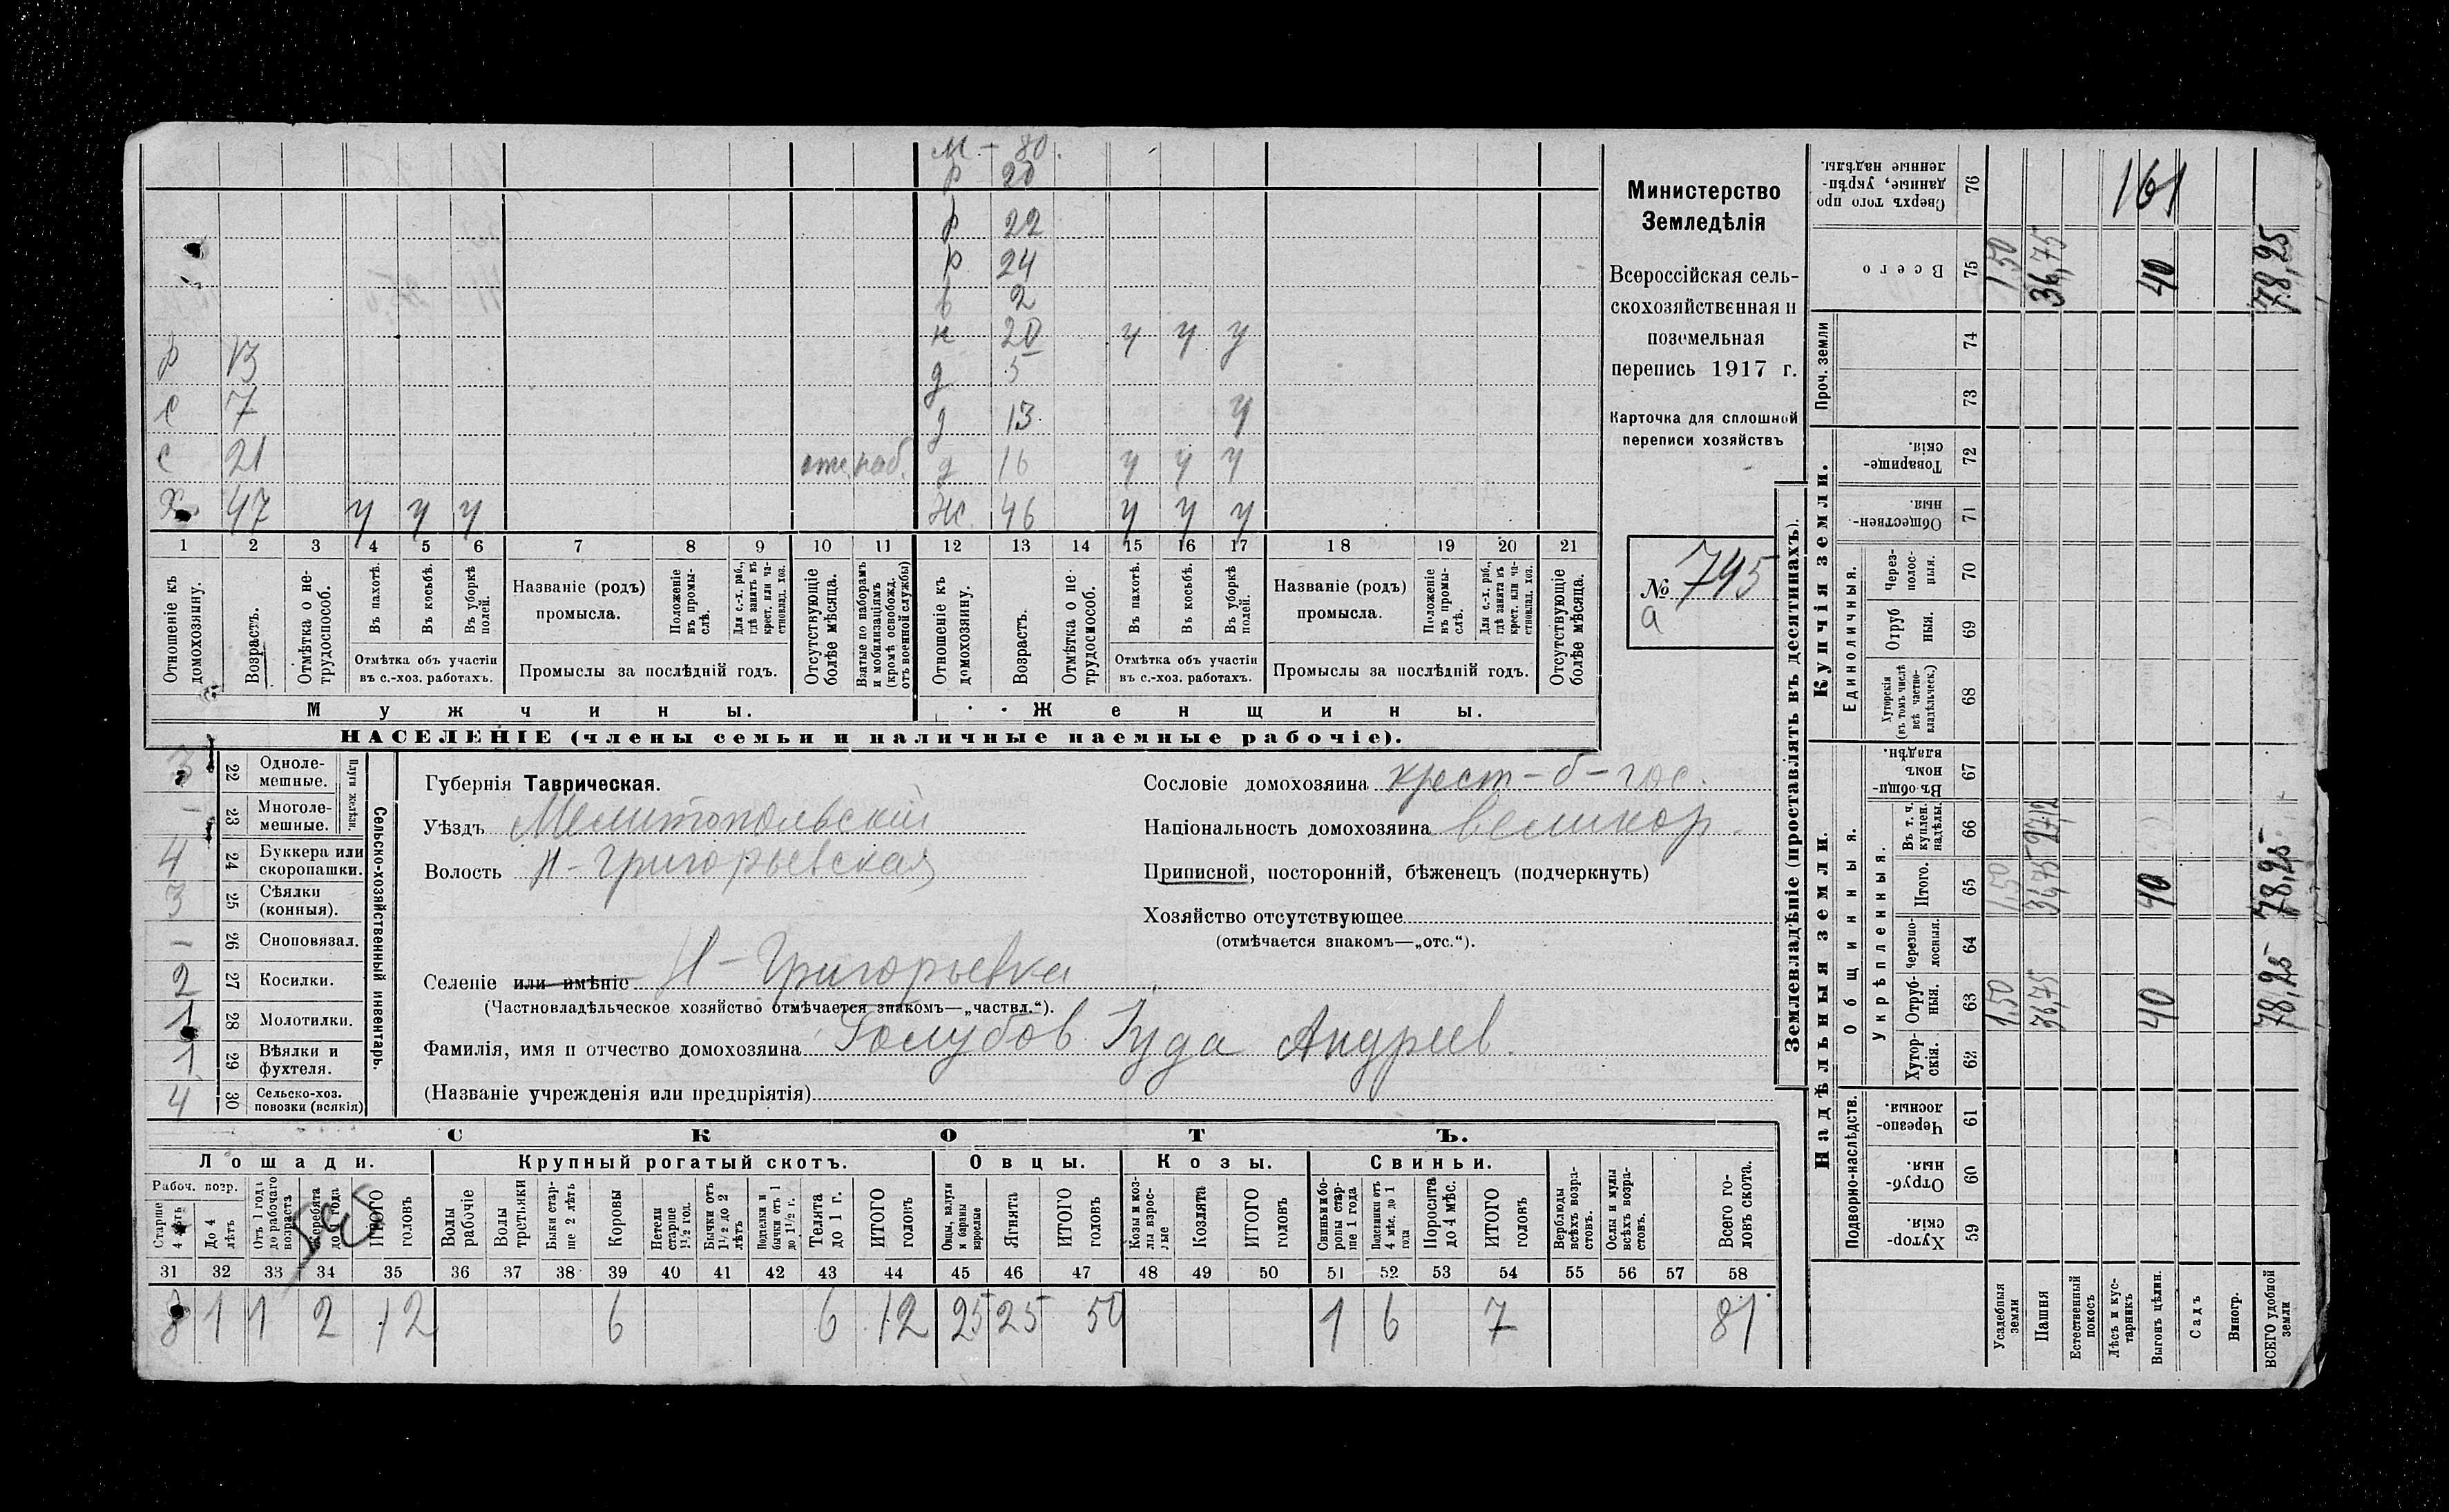 М – 80.
р 20
р 22
р 24
в 2
н 20 у у у
р 13 д 5
с 7 д 13 у
с 21 д 16 у у у
Х 47 у у у Ж 46 у у у
1 2 3 4 5 6 7 8 9 10 11 12 13 14 15 16 17 18 19 20 21
Отношеніе къ домохозяину.
Возрастъ.
Отмѣтка о нетрудоспособ.
Въ пахотѣ.
Въ косьбѣ.
Въ уборкѣ полей.
Отмѣтка объ участіи
въ с.-хоз. работахъ.
Названіе (родъ)
промысла.
Положеніе въ промыслѣ.
Для с.-х. раб., гдѣ занятъ въ крест. или частновлад. хоз.
Промыслы за послѣдній годъ.
Отсутствующіе болѣе мѣсяца.
Взятые по наборамъ и мобилизаціямъ (кромѣ освобожд. отъ военной службы)
Отношеніе къ домохозяину.
Возрастъ.
Отмѣтка о не трудоспособ.
Въ пахотѣ.
Въ косьбѣ.
Въ уборкѣ полей.
Отмѣтка объ участіи
въ с.-хоз. работахъ.
Названіе (родъ)
промысла.
Положеніе въ промыслѣ.
Для с.-х. раб., гдѣ занята въ крест. или частновлад. хоз.
Промыслы за послѣдній годъ.
Отсутствующіе болѣе мѣсяца.
Мужчины.
Женщины.
НАСЕЛЕНІЕ (члены семьи и наличные наемные рабочіе).
Министерство
Земледѣлія
Всероссійская сель-
скохозяйственная и
поземельная
перепись 1917 г.
Карточка для сплошной
переписи хозяйствъ
№ 745
а
3 22 Однолемешные.
– 23 Многолемешные.
Плуги желѣзн.
4 24 Буккера или скоропашки.
3 25 Сѣялки (конныя).
– 26 Сноповязал.
2 27 Косилки.
1 28 Молотилки.
1 29 Вѣялки и фухтеля.
4 30 Сельско-хоз. повозки (всякія)
Сельско-хозяйственный инвентарь.
Губернія Таврическая.
Уѣздъ Мелитопольскій
Волость Н-Григорьевская
Селеніе или имѣніе Н-Григорьевка
(Частновладѣльческое хозяйство отмѣчается знакомъ—„частвл.“).
Фамилія, имя и отчество домохозяина Голубов Іуда Андреев.
(Названіе учрежденія или предпріятія)
Сословіе домохозяина крест-б-гос.
Національность домохозяина великор.
Приписной, посторонній, бѣженец (подчеркнуть)
Хозяйство отсутствующее
(отмѣчается знакомъ—„отс.“).
СКОТЪ.
Лошади. Крупный рогатый скотъ. Овцы. Козы. Свиньи.
Рабоч. возр.
Старше 4 лѣтъ
До 4 лѣтъ
Отъ 1 года до рабочаго возраста
Жеребята до 1 года
ИТОГО головъ
Волы рабочіе
Волы третьяки
Быки старше 2 лѣтъ
Коровы
Нетели старше 1½ год.
Бычки отъ 1½ до 2 лѣтъ
Подтелки и бычки отъ 1 до 1½ г.
Телята до 1 г.
ИТОГО головъ
Овцы, валухи и бараны взрослые
Ягнята
ИТОГО головъ
Козы и козлы взрослые
Козлята
ИТОГО головъ
Свиньи и боровы старше 1 года
Подсвинки отъ 4 мѣс. до 1 года
Поросята до 4 мѣс.
ИТОГО головъ
Верблюды всѣхъ возрастовъ.
Ослы и мулы всѣхъ возрастовъ.
Всего головъ скота.
31 32 33 34 35 36 37 38 39 40 41 42 43 44 45 46 47 48 49 50 51 52 53 54 55 56 57 58
8 1 1 2 12 6 6 12 25 25 50 1 6 7 81
Землевладѣніе (проставлять въ десятинахъ).
Надѣльныя земли.
Купчія земли.
Проч. земли
Подворно-наслѣдств.
Общинныя.
Укрѣпленныя.
Единоличныя.
Хуторскія. 59
Отрубныя. 60
Черезполосныя. 61
Хуторскія. 62
Отрубныя. 63
Черезполосныя. 64
Итого. 65
Въ т. ч. куплен. надѣлы. 66
Въ общинномъ владѣн. 67
Хуторскія (въ томъ числѣ всѣ частновладѣльческ.) 68
Отрубныя. 69
Черезполосныя. 70
Общественныя. 71
Товарищескія. 72
73
74
Всего 75
Сверхъ того проданные, укрѣпленные надѣлы. 76
Усадебныя земли 1,50 1,50 1,50
Пашня 36,75 36,75 27/12 36,75
Естественный покосъ
Лѣсъ и кустарникъ
Выгонъ цѣлин. 40 40 40
161
Садъ
Виногр.
ВСЕГО удобной земли 78,25 78,25 78,25